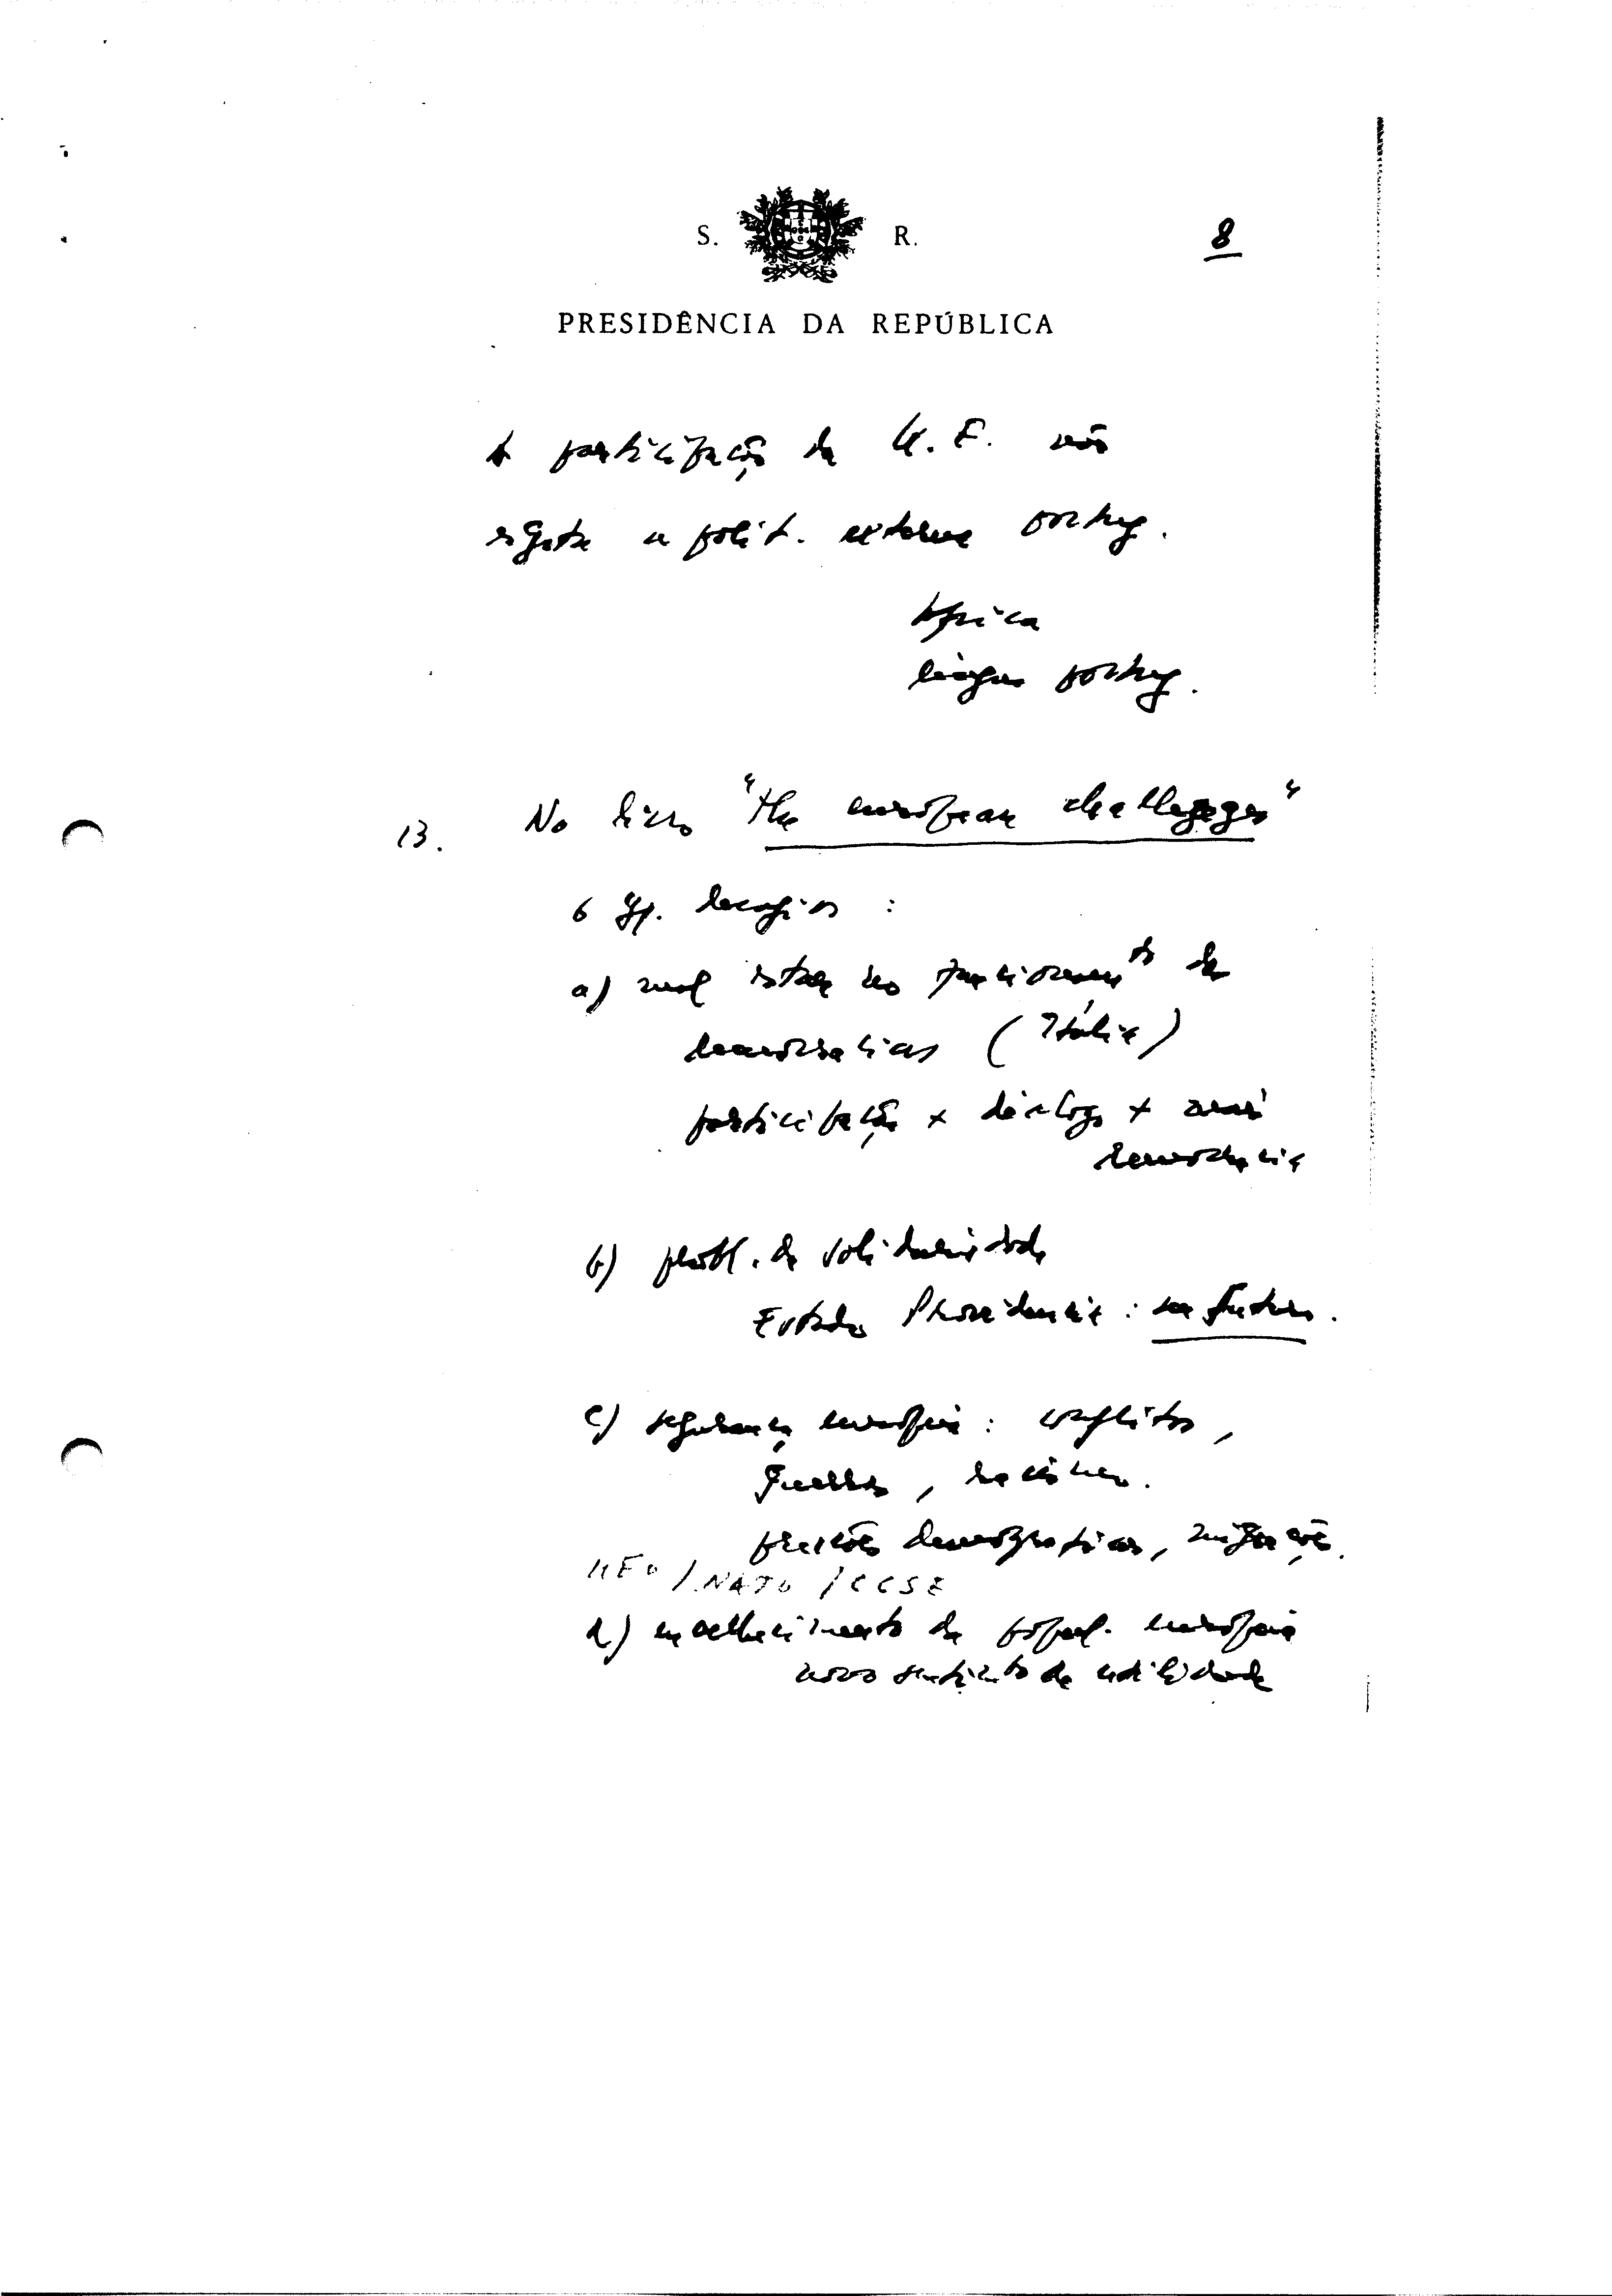 S. R.
8
PRESIDÊNCIA DA REPÚBLICA
A participação da U.E. não
esgota a polít. externa portug.
África
língua portug.
13. No livro "the european challegeges"
6 gr.
a) mal estar no funcionamento da
democracias (Itália)
participação + diálogo + mais
democracia
b) probl. da solidariedade
Estado Providência : seu futuro.
c) segurança europeia : conflitos,
guerras, racismo.
pressões demográficas, migrações.
UEO / NATO / CCSE
d) envelhecimento da popul. europeia
novo sentimento de utilidade